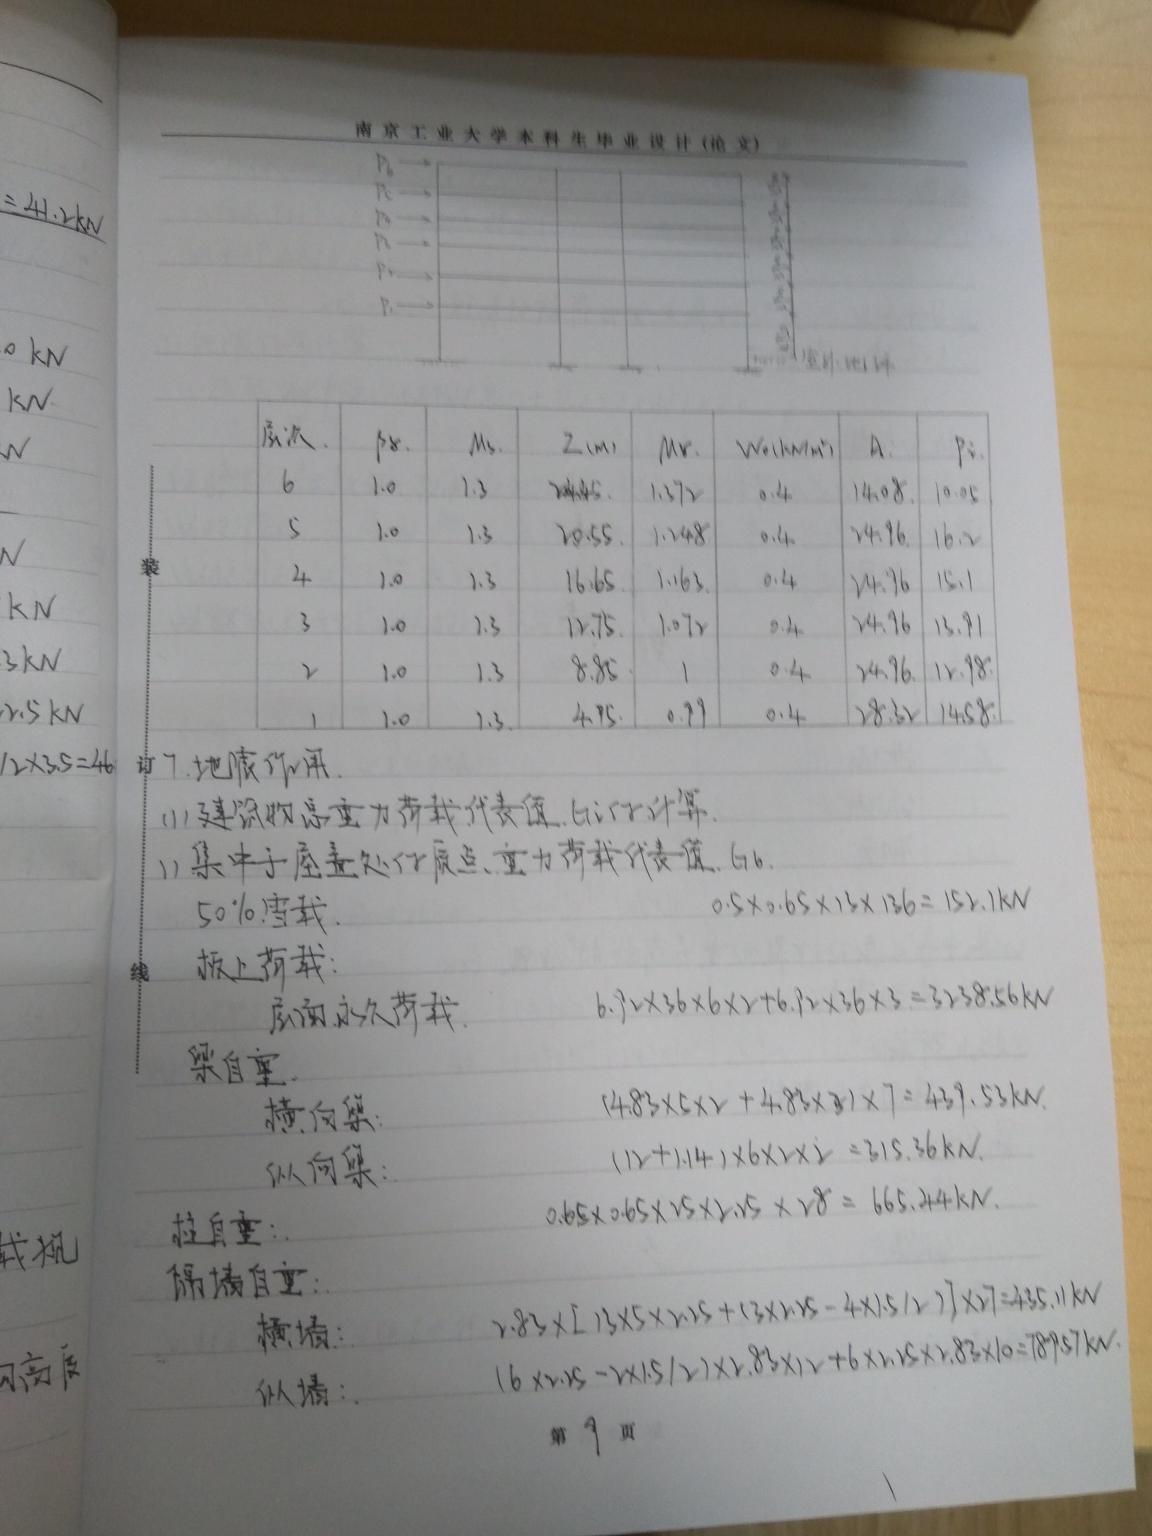 南京工业大学本科生毕业设计(论文)
P6
P5
P1
室外地坪
层次. βz. μs. Z(m) μz. W0(kN/m²) A. Pi.
6 1.0 1.3 1.372 0.4 14.08. 10.05
5 1.0 1.3 20.55. 1.248 0.4 24.96. 16.2
4 1.0 1.3 16.65. 1.163. 0.4 24.96 15.1
3 1.0 1.3 12.75. 1.072 0.4 24.96 13.91
2 1.0 1.3 8.85. 1 0.4 24.96. 12.98.
1 1.0 1.3. 4.95. 0.99 0.4 28.32 14.58.
7.地震作用.
(1)建筑物总重力荷载代表值Gi的计算.
1)集中于屋盖处的质点重力荷载代表值G6.
50%雪载. 0.5×0.65×13×136=152.1kN
板上荷载:
屋面永久荷载. 6.92×36×6×2+6.92×36×3=3238.56kN
梁自重.
横向梁: (4.83×5×2+4.83×3)×7=439.53kN.
纵向梁: (12+1.14)×6×2×2=315.36kN.
柱自重: 0.65×0.65×25×2.25×28=665.44kN.
隔墙自重:
横墙: 2.83×[13×5×2.25+(3×2.25-4×1.5/2)]×27=435.11kN
纵墙: (6×2.25-2×1.5/2)×2.83×12+6×2.25×2.83×10=789.57kN.
第9页
装
订
线
=41.2kN
.0 kN
kN.
N
N
kN
3kN
2.5kN
/2×3.5=46
载
高度